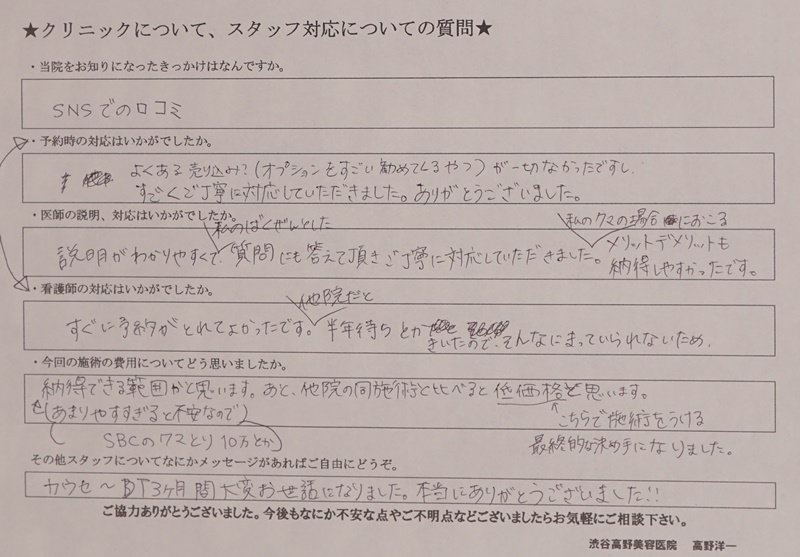 ★クリニックについて、スタッフ対応についての質問★
・当院をお知りになったきっかけはなんですか。
SNSでの口コミ
・予約時の対応はいかがでしたか。
よくある売り込み?(オプションをすごい勧めてくるやつ)が一切なかったですし、
すごくご丁寧に対応していただきました。ありがとうございました。
・医師の説明、対応はいかがでしたか。
私のばくぜんとした
私のクマの場合におこる
説明がわかりやすくて、質問にも答えて頂きご丁寧に対応していただきました。メリットデメリットも
納得しやすかったです。
・看護師の対応はいかがでしたか。
他院だと
すぐに予約がとれてよかったです。半年待ちとか
きいたので、そんなにまっていられないため、
・今回の施術の費用についてどう思いましたか。
納得できる範囲かと思います。あと、他院の同施術と比べると低価格と思います。
(あまりやすすぎると不安なので)
こちらで施術をうける
SBCのクマとり10万とか
最終的な決め手になりました。
その他スタッフについてなにかメッセージがあればご自由にどうぞ。
カウセ〜BT3ヶ月間大変お世話になりました。本当にありがとうございました!!
ご協力ありがとうございました。今後もなにか不安な点やご不明点などございましたらお気軽にご相談下さい。
渋谷高野美容医院 高野洋一